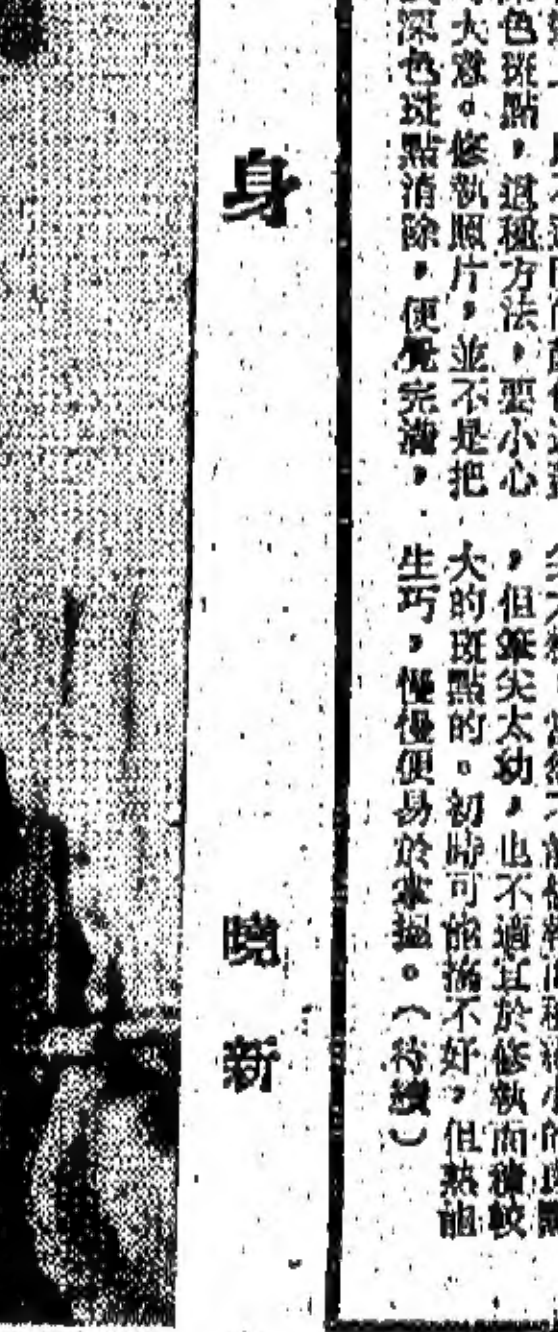 色斑點，這種方法，要小心
大意。修執照片，並不是把
深色斑點消除，便覺完滿，
，但筆尖太幼，也不適宜於修執面積較
大的斑點的。初時可能搞不好，但熟能
生巧，慢慢便易於掌握。（待續）
身
曉新